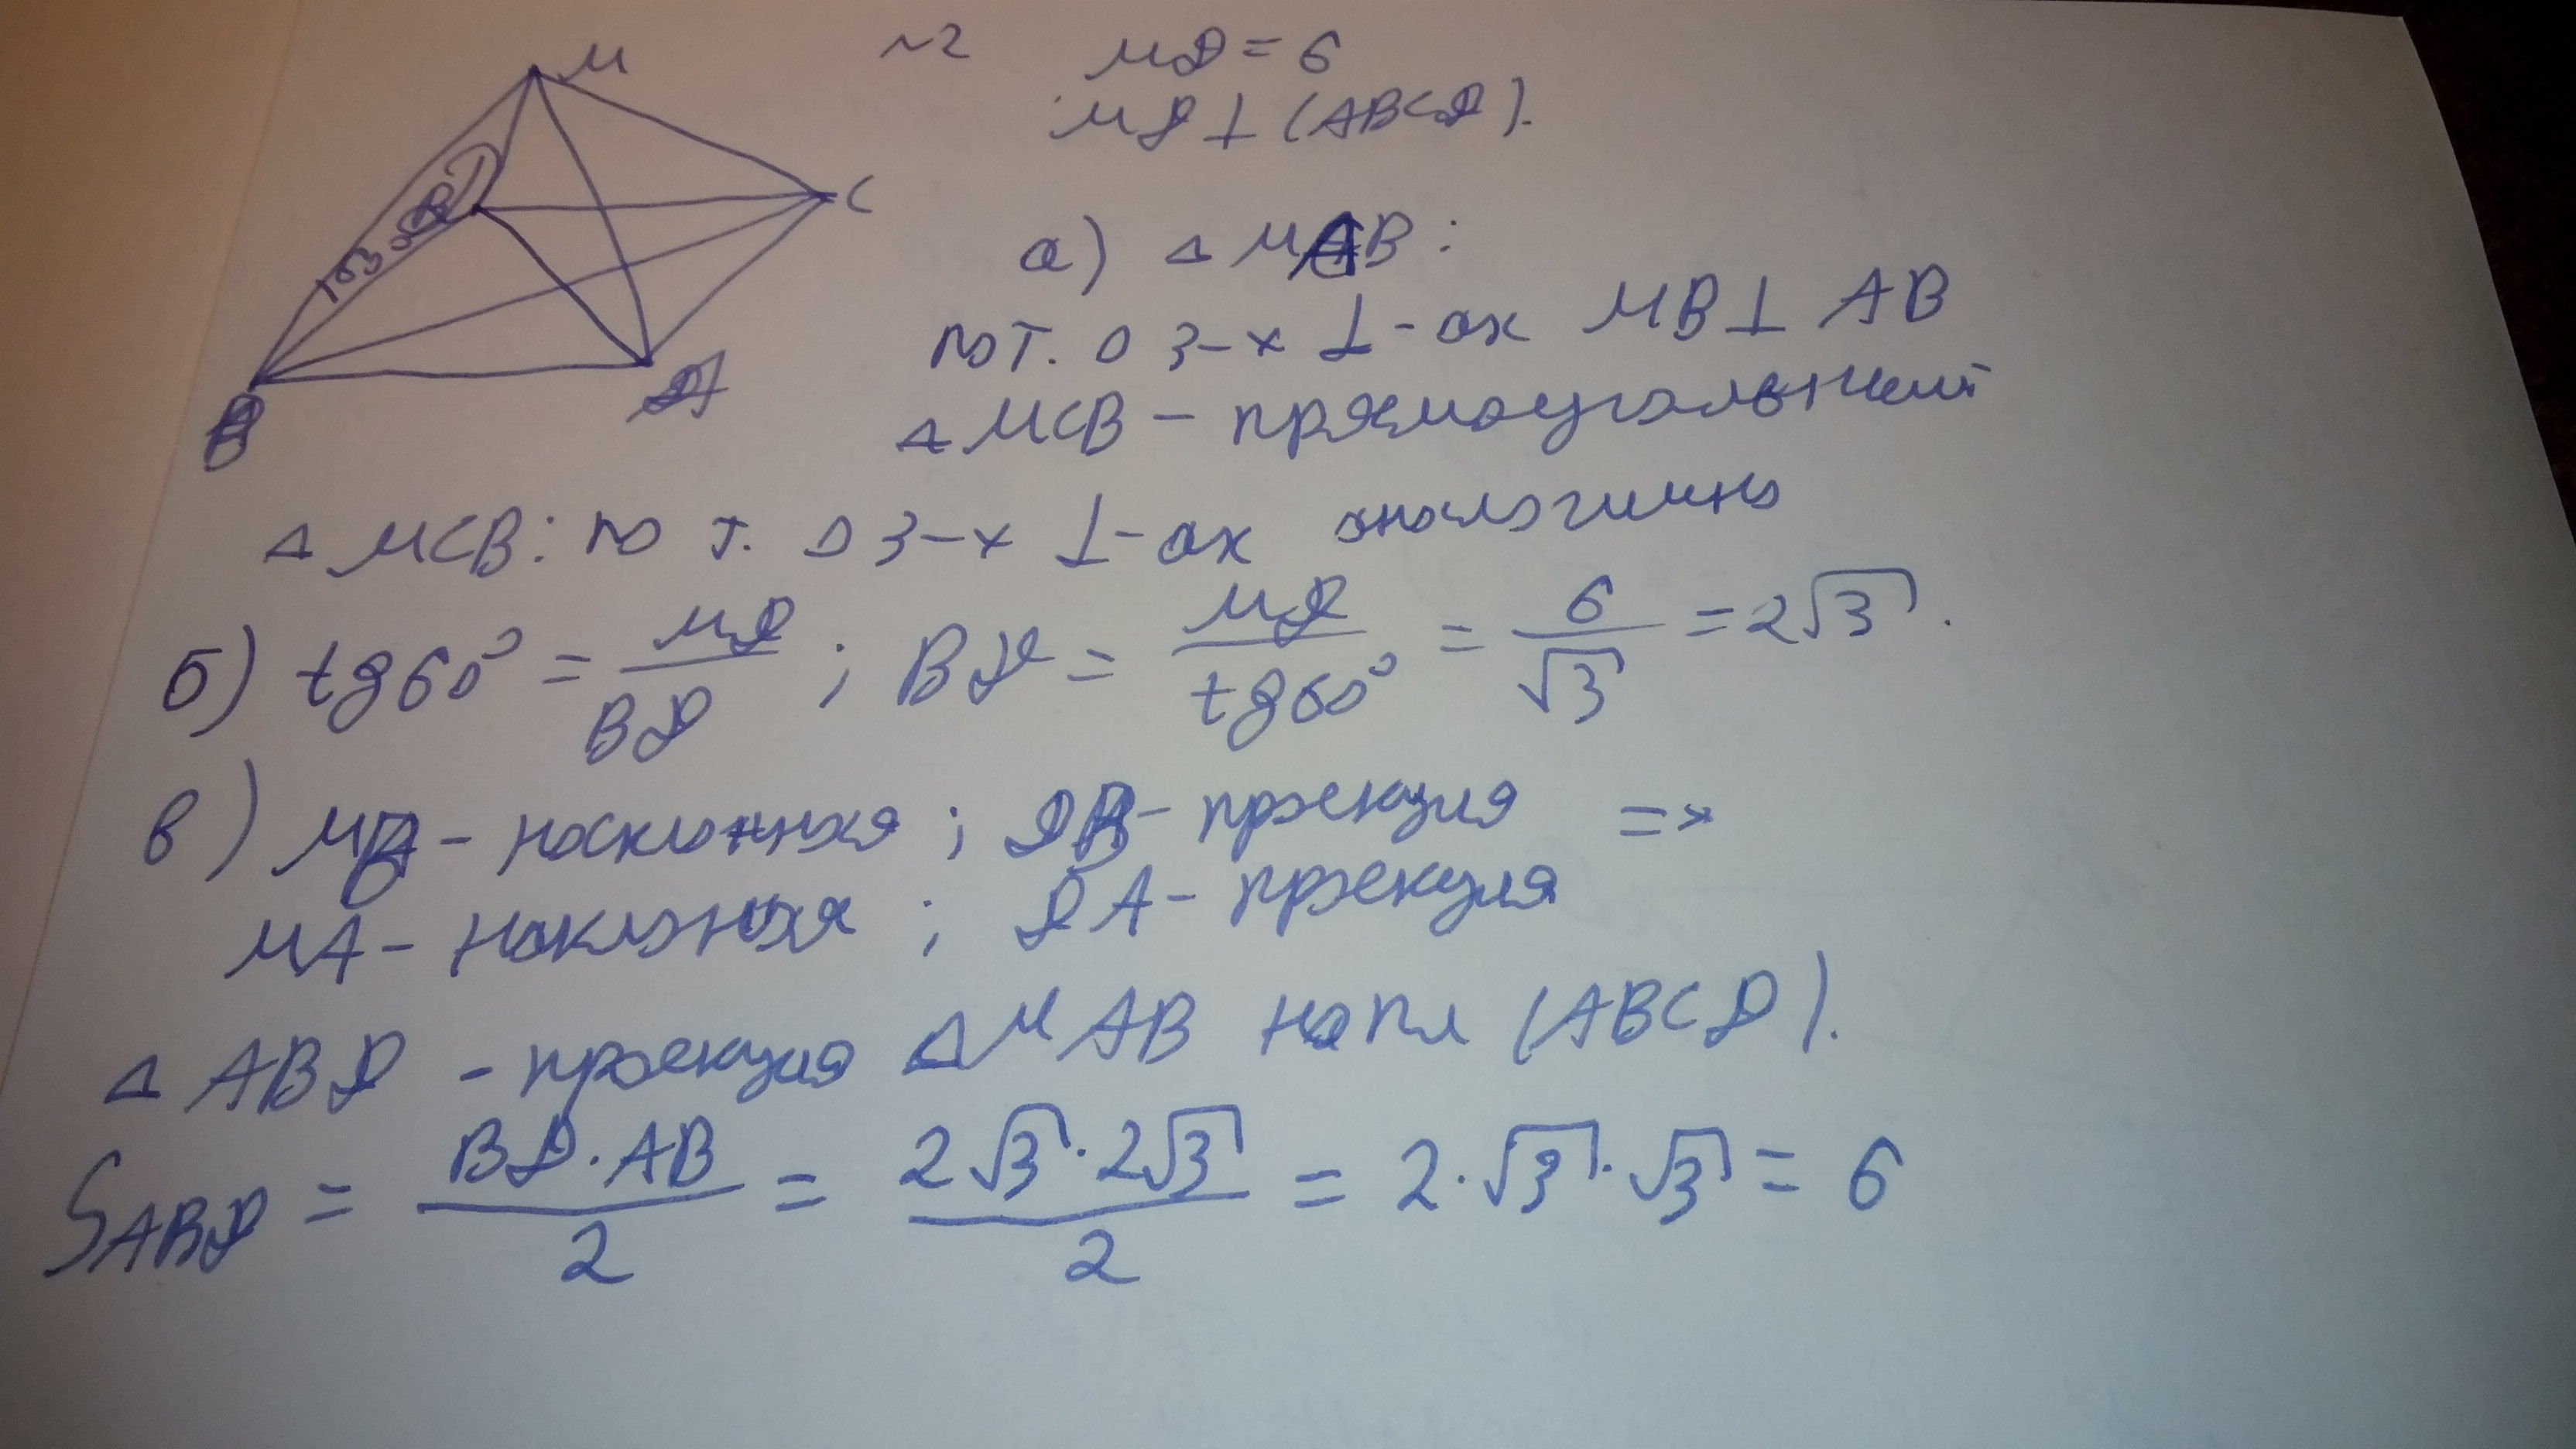 м
~2
MD = 6
MD ⊥ (ABCD).
C
B
а) △ MAB:
по т. о 3-х ⊥-ах MB ⊥ AB
△ MCB – прямоугольный
△ MCB: по т. о 3-х ⊥-ах аналогично
б) tg60° = MD/BD ; BD = MD/tg60° = 6/√3 = 2√3.
в) MB - наклонная ; DB - проекция =>
MA - наклонная ; DA - проекция
△ ABD - проекция △ MAB на пл (ABCD).
S_ABD = BD·AB/2 = 2√3·2√3/2 = 2·√3·√3 = 6